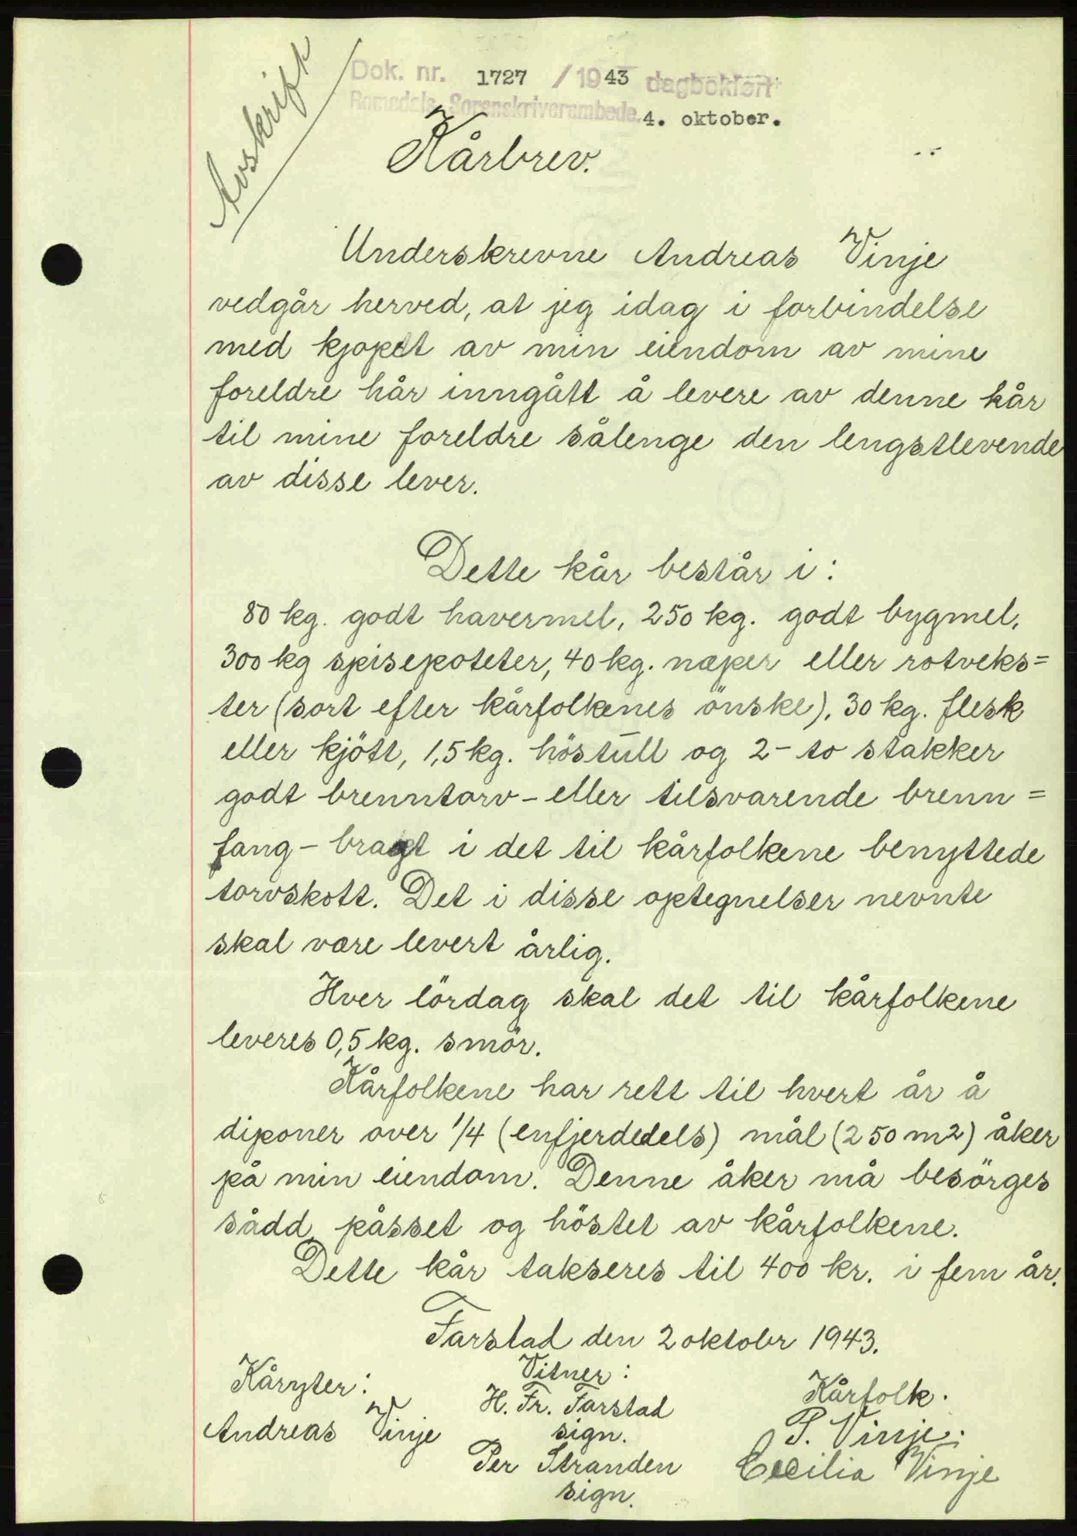 Avskrift
Dok. nr. 1727 / 1943 dagbokført
Romsdals Sorenskriverembede. 4. oktober.
Kårbrev.
Underskrevne Andreas Vinje
vedgår herved, at jeg idag i forbindelse
med kjøpet av min eiendom av mine
foreldre hår inngått å levere av denne kår
til mine foreldre sålenge den lengstlevende
av disse lever.
Dette kår består i:
80 kg. godt havermel, 250 kg. godt bygmel,
300 kg spisepoteter, 40 kg. næper eller rotveks=
ter (sort efter kårfolkenes önske), 30 kg. flesk
eller kjött, 1,5 kg. höstull og 2- to stakker
godt brenntorv - eller tilsvarende brenn=
fang - bragt i det til kårfolkene benyttede
torvskott. Det i disse optegnelser nevnte
skal være levert årlig.
Hver lördag skal det til kårfolkene
leveres 0,5 kg. smör.
Kårfolkene har rett til hvert år å
diponer over 1/4 (enfjerdedels) mål (250 m2) åker
på min eiendom. Denne åker må besörges
sådd, påsset og höstet av kårfolkene.
Dette kår takseres til 400 kr. i fem år.
Farstad den 2 oktobr 1943.
Kåryter:
Andreas Vinje
Vitner:
H. Fr. Farstad
sign.
Per Stranden
sign.
Kårfolk.
P. Vinje.
Cecilia Vinje